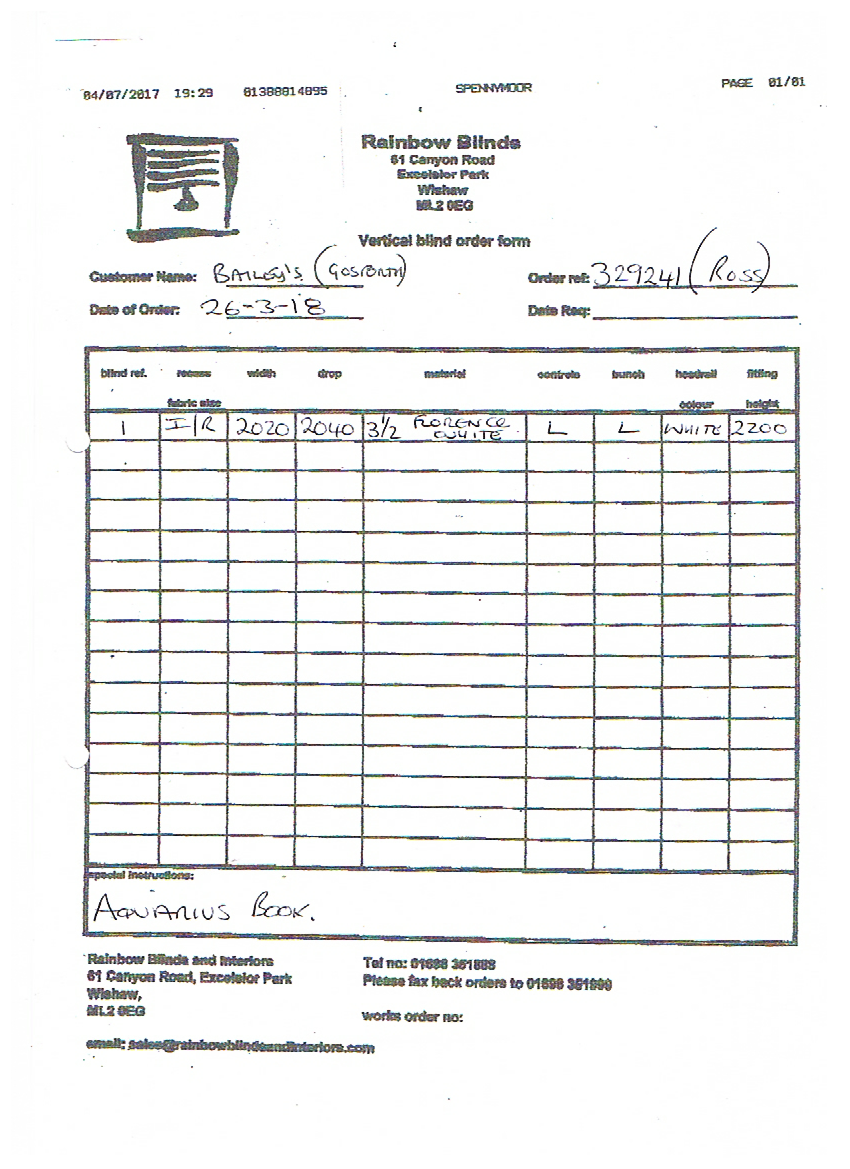 04/07/2017 19:29 01388814895 SPENNYMOOR PAGE 01/01
Rainbow Blinds
61 Canyon Road
Excelsior Park
Wishaw
ML2 0EG
Vertical blind order form
Customer Name: BAILEY'S (GOSFORTH) Order ref: 329241 (ROSS)
Date of Order: 26-3-18 Date Req:
blind ref. recess width drop material controls bunch headrail fitting
fabric size colour height
1 I/R 2020 2040 3½ FLORENCE WHITE L L WHITE 2200
special instructions:
AQUARIUS BOOK.
Rainbow Blinds and Interiors Tel no: 01698
61 Canyon Road, Excelsior Park Please fax back orders to 01698
Wishaw,
ML2 0EG works order no:
email: sales@rainbowblindsandinteriors.com